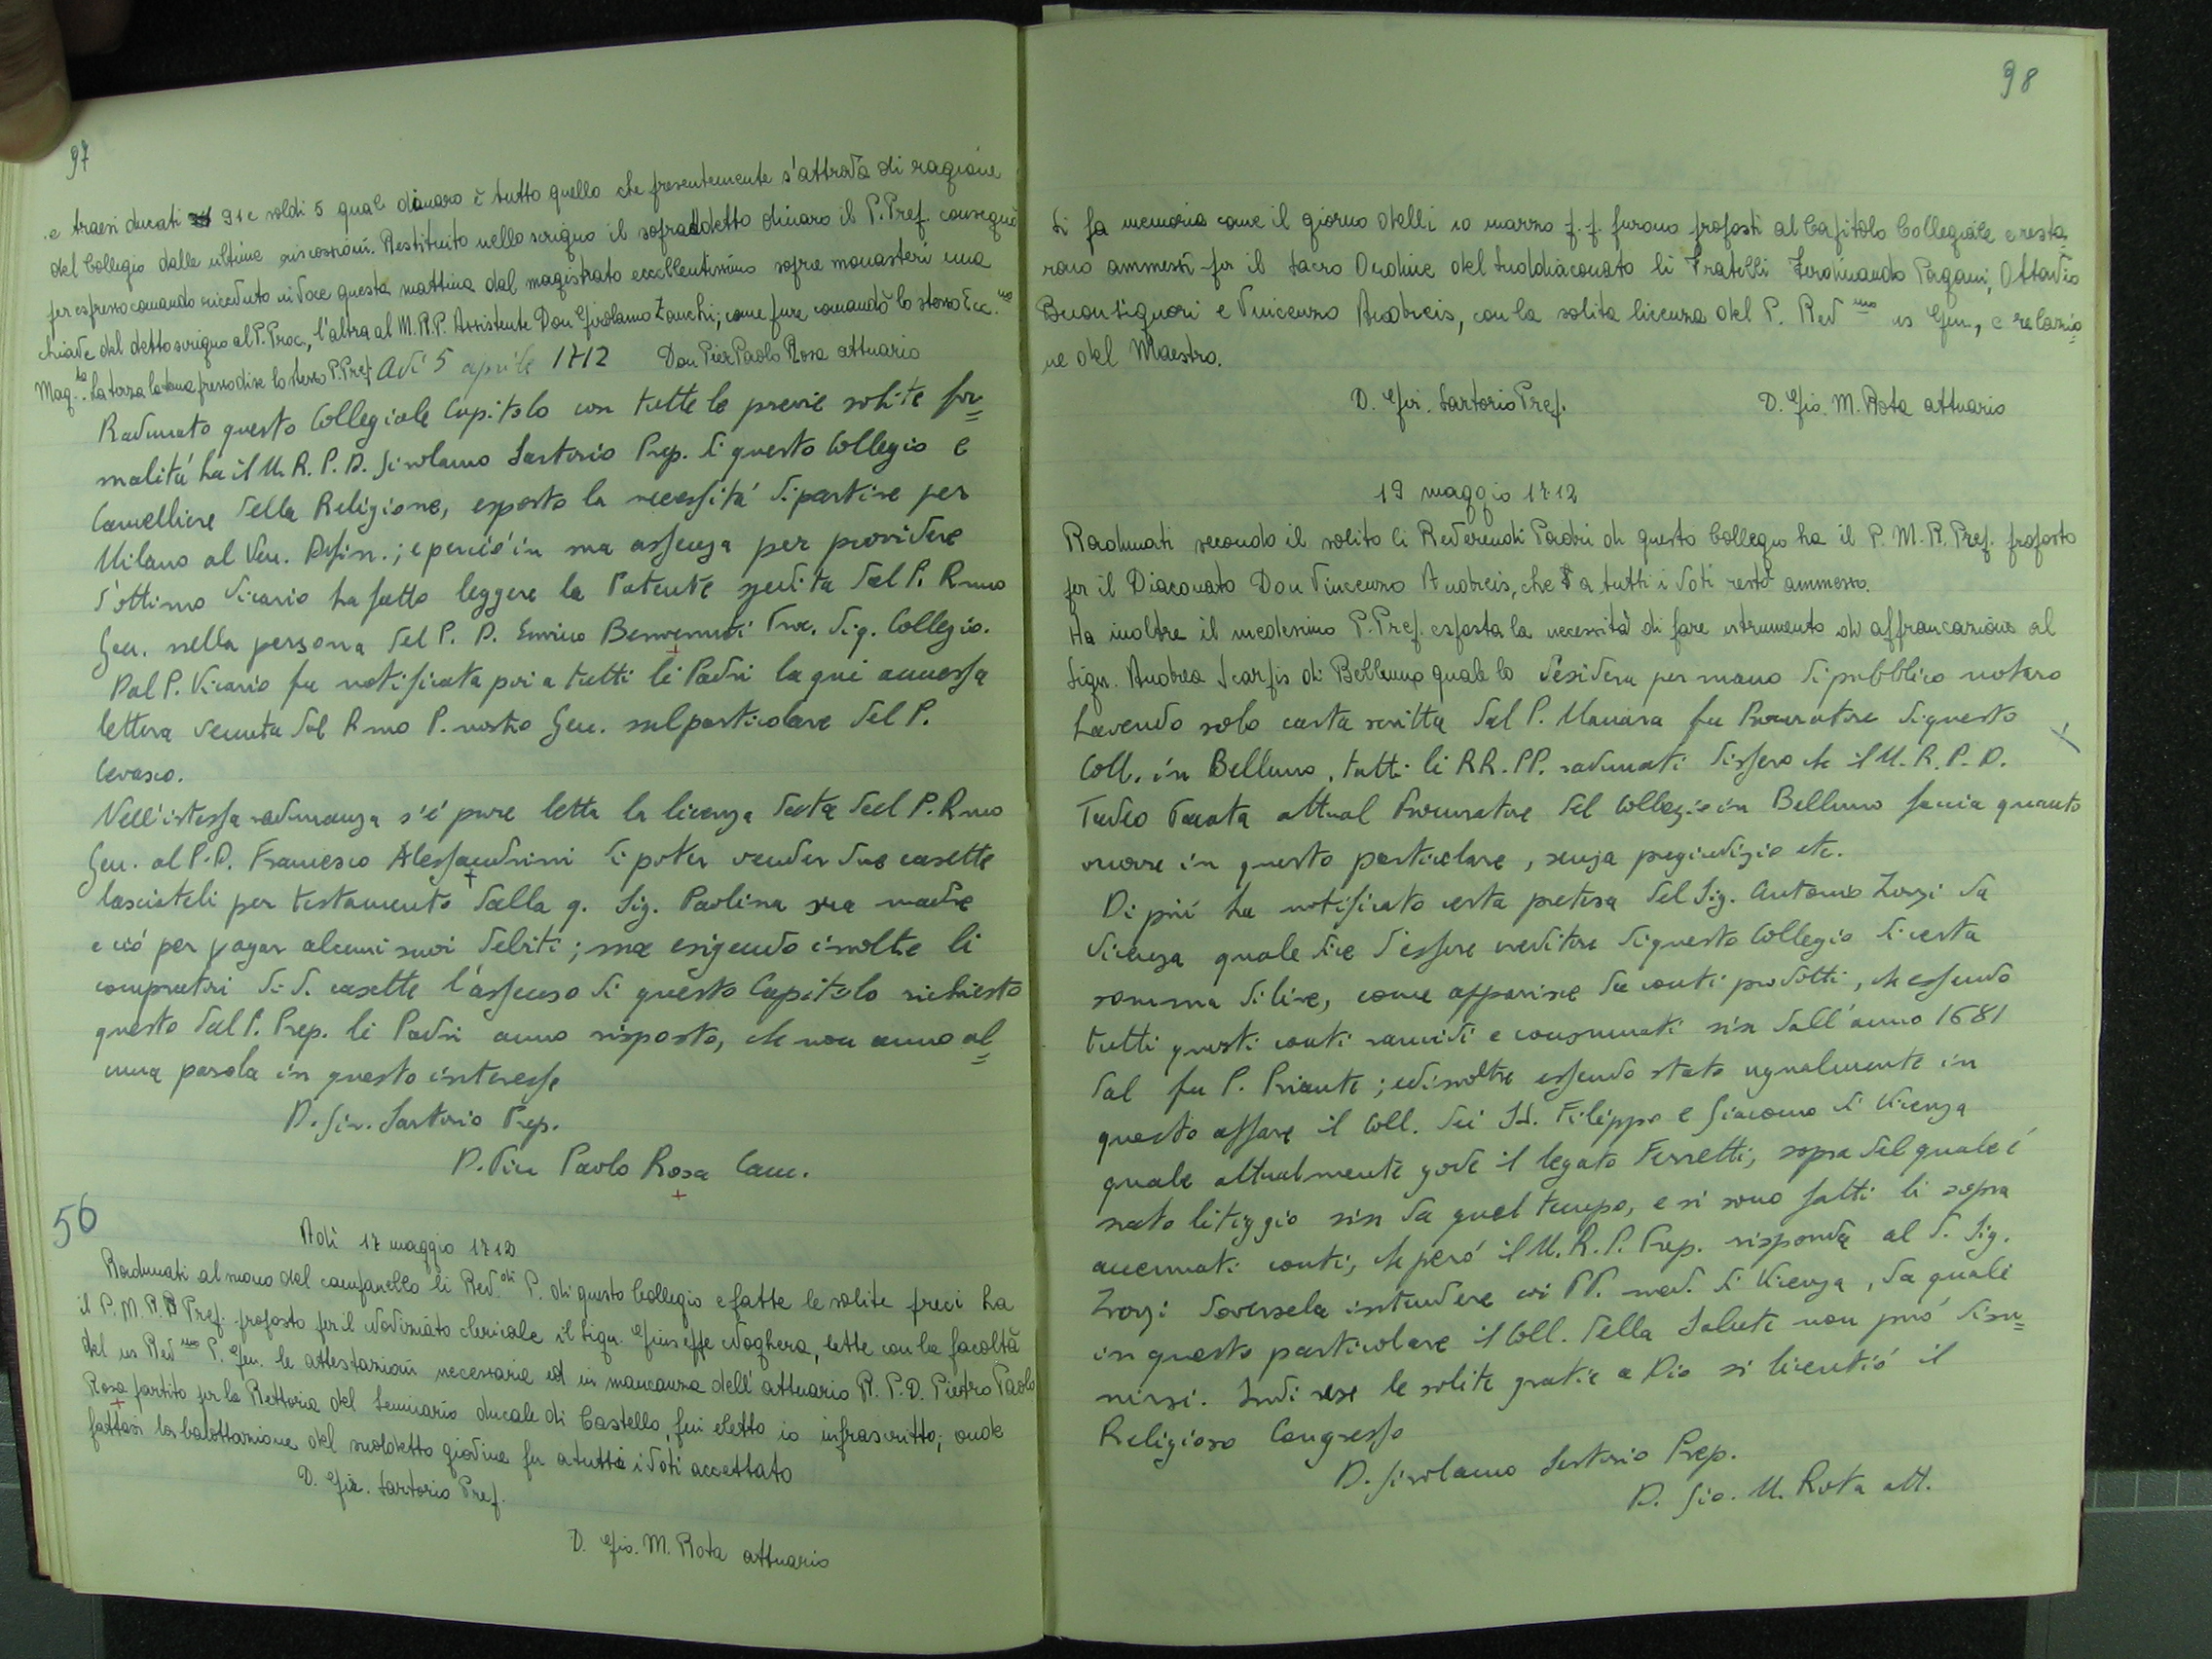 97
e traesi ducati 91 e soldi 5 qual dinaro è tutto quello che presentemente s'attrova di ragione
del Collegio dalle ultime riscossioni. Restituito nello scrigno il sopraddetto dinaro il P. Prep. consegnò
per espresso comando ricevuto in voce questa mattina dal magistrato eccellentissimo sopra monasteri una
chiave del detto scrigno al P. Proc., l'altra al M.R.P. Assistente Don Girolamo Zanchi; come pure comandò lo stesso Ecc.mo
Mag.to. La terza la tenne presso di se lo stesso P. Prep. Adi 5 aprile 1712 Don Pier Paolo Rosa attuario
Radunato questo Collegiale Capitolo con tutte le previe solite for=
malità ha il M. R. P. D. Girolamo Sartorio Prep. di questo Collegio e
Cancelliere della Religione, esposto la necessità di partire per
Milano al Ven. Defin.; e perciò in sua assenza per provvidere
d'ottimo Vicario ha fatto leggere la Patente spedita dal P. Rmo
Gen. nella persona del P. D. Enrico Benvenuti Proc. di q. Collegio.
Dal P. Vicario fu notificata poi a tutti li Padri la qui annessa
lettera venuta dal Rmo P. nostro Gen. sul particolare del P.
Cevasco.
Nell'istessa radunanza s'è pure letta la licenza data dal P. Rmo
Gen. al P. D. Francesco Alessandrini di poter vender due casette
lasciateli per testamento dalla q. Sig. Paolina sua madre
e ciò per pagar alcuni suoi debiti; ma esigendo inoltre li
compratori di d. casette l'assenso di questo Capitolo richiesto
questo dal P. Prep. li Padri anno risposto, che non anno al=
cuna parola in questo interesse
D. Gir. Sartorio Prep.
D. Pier Paolo Rosa Canc.
56
Adi 17 maggio 1712
Radunati al suono del campanello li Red.di P. di questo Collegio e fatte le solite preci ha
il P. M. R. P Prep. proposto per il Novizziato clericale il Sign. Giuseppe Voghera, lette con la facoltà
del ns Red mo P. Gen. le attestazioni necessarie ed in mancanza dell'attuario R. P. D. Pietro Paolo
Rosa partito per la Rettoria del Seminario ducale di Castello, fui eletto io infrascritto; onde
fattasi la ballottazione del suddetto giovine fu a tutti i voti accettato
D. Gir. Sartorio Prep.
D. Gio. M. Rota attuario
98
Si fa memoria come il giorno delli 10 marzo p. p. furono proposti al Capitolo Collegiale e resta=
rono ammessi per il Sacro Ordine del Suddiaconato li Fratelli Ferdinando Pagani, Ottavio
Buonsignori e Vincenzo Andreis, con la solita licenza del P. Red mo ns Gen., e relazio=
ne del Maestro.
D. Gir. Sartorio Prep. D. Gio. M. Rota attuario
19 maggio 1712
Radunati secondo il solito li Reverendi Padri di questo Collegio ha il P. M. R. Prep. proposto
per il Diaconato Don Vincenzo Andreis, che a tutti i voti restò ammesso.
Ha inoltre il medesimo P. Prep. esposta la necessità di fare istrumento di affrancazione al
Sign. Andrea Scarpis di Belluno quale lo desidera per mano di pubblico notaro
havendo solo carta scritta dal P. Manara fu Procuratore di questo
Coll. in Belluno, tutti li RR. PP. radunati dissero che il M. R. P. D.
Tadeo attual Procuratore del Collegio in Belluno faccia quanto
occorre in questo particolare, senza pregiudizio etc.
Di più ha notificato certa pretesa del Sig. Antonio Zorzi da
Vicenza quale dice d'essere creditore di questo Collegio di certa
somma di lire, come apparisce da conti prodotti, che essendo
tutti questi conti rancidi e consumati sin dall'anno 1681
dal fu P. Priante; ed inoltre essendo stato ugualmente in
questo affare il Coll. dei SS. Filippo e Giacomo di Vicenza
quale attualmente gode il legato Ferretti, sopra del quale è
nato litiggio sin da quel tempo, e si sono fatti li sopra
accennati conti, che però il M. R. P. Prep. risponda al d. Sig.
Zorzi doversela intendere coi PP. med. di Vicenza, da quali
in questo particolare il Coll. della Salute non può disu=
nirsi. Indi rese le solite gratie a Dio si licentiò il
Religioso Congresso
D. Girolamo Sartorio Prep.
D. Gio. M. Rota att.